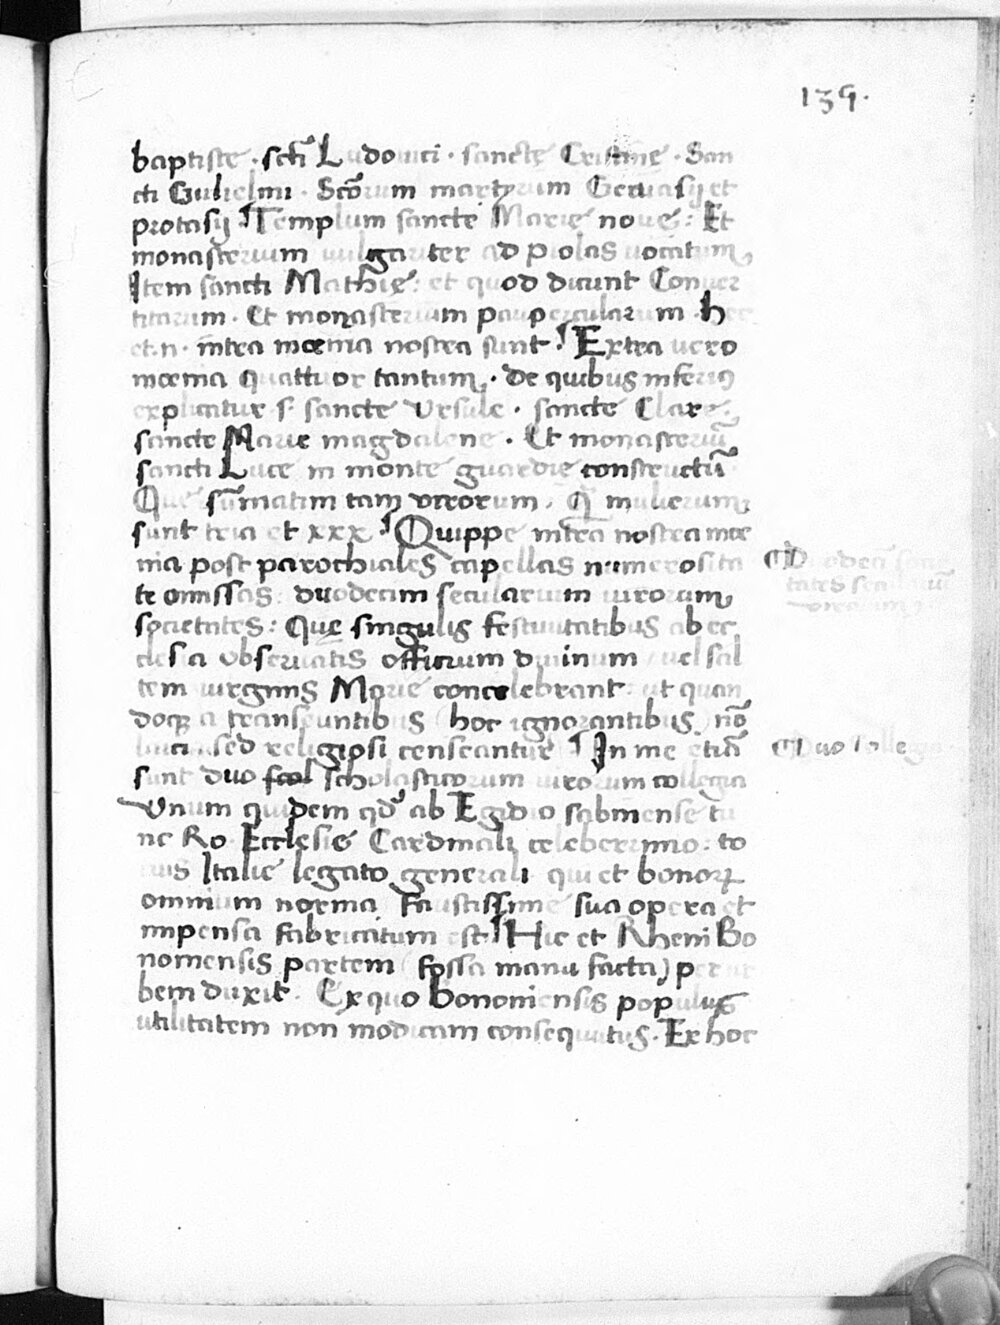 139.
baptiste · scti Ludouici · sancte Cristine · San
cti Gulielmi · Scōrum martyrum Geruasij et
protasij ¶ Templum sancte Marie noue : Et
monasterium uulgariter ad piolas uocatum,
Item sancti Mathie : et quod dicunt Conuer
titarum · Et monasterium paupercularum · hec
et.n. intra mœnia nostra sunt · ¶ Extra uero
mœnia quattuor tantum, · de quibus inferius
explicatur s. sancte Ursule · sancte Clare ·
sancte Marie magdalene · Et monasteriū
sancti Luce in monte guardie constructū
Que sūmatim tam uirorum, q̄ mulierum,
sunt tria et xxx ¶ Quippe intra nostra mœ
nia post parochiales capellas numerosita
te omissas : duodecim secularium uirorum,
societates : Que singulis festiuitatibus ab ec
clesia obseruatis officium diuinum uel sal
tem uirginis Marie concelebrant : ut quan
doq a transeuntibus (hoc ignorantibus) nō
laici sed religiosi censeantur ¶ In me etiā
sunt duo scol scholasticorum uirorum collegia
Vnum quidem qd' ab Egidio sabinense tu
nc Ro. Ecclesie Cardinali celeberrimo : to
tius Italie legato generali qui et bonoꝝ
omnium norma, faustissime sua opera et
impensa fabricatum est. ¶ Hic et Rheni Bo
noniensis partem (fossa manu facta) per ur
bem duxit. Ex quo bononiensis populus
utilitatem non modicam consequutus. Ex hoc
¶ Duodecī socie
tates seculariū
uirorum,
¶ Duo Collegia